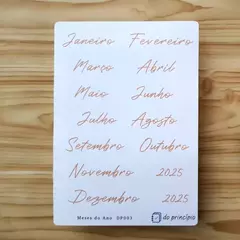 Janeiro Fevereiro
Março Abril
Maio Junho
Julho Agosto
Setembro Outubro
Novembro 2025
Dezembro 2025
Meses do Ano DP003
do princípio